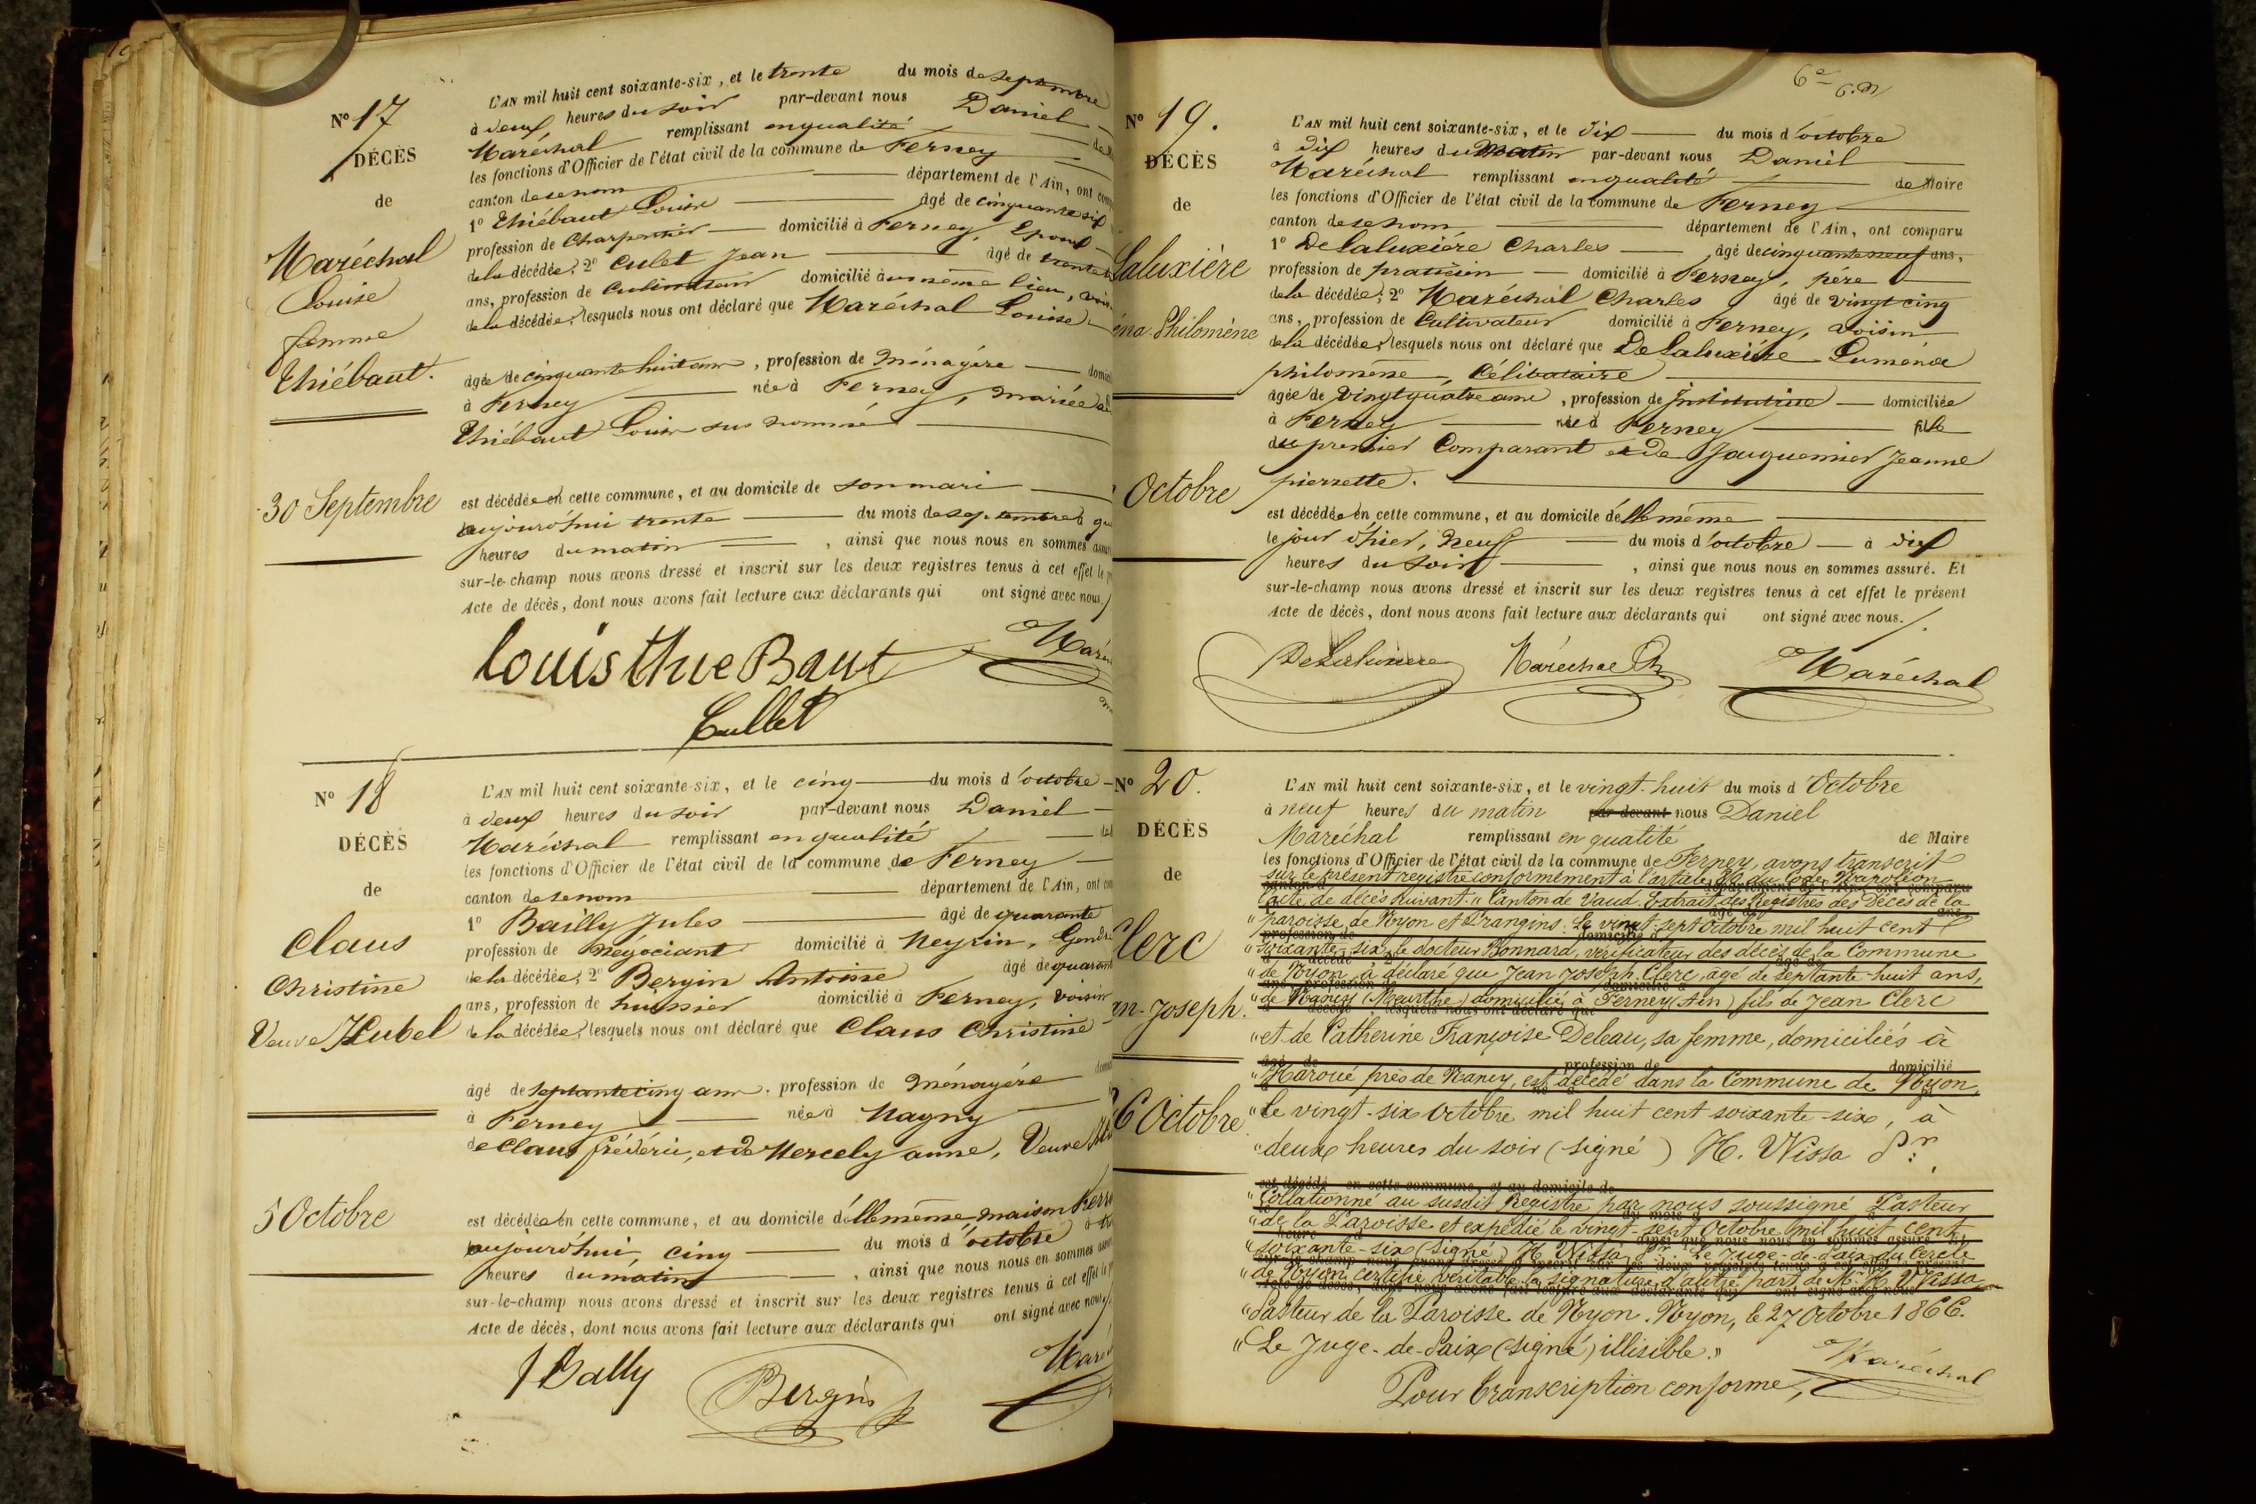 Nº 17
DÉCÈS
de
Maréchal
Louise
femme
Thiébaut.
30 Septembre
L'AN mil huit cent soixante-six, et le trente du mois de septembre
à deux heures du soir par-devant nous Daniel
Maréchal remplissant en qualité
les fonctions d'Officier de l'état civil de la commune de Ferney
canton de ce nom département de l'Ain, ont
1º Thiébaut Louis âgé de cinquante six
profession de Charpentier domicilié à Ferney, Epoux
de la décédée; 2º Culet Jean âgé de
ans, profession de Cultivateur domicilié au même lieu,
de la décédée; lesquels nous ont déclaré que Maréchal Louise
âgée de cinquante huit ans, profession de Ménagère
à Ferney née à Ferney, mariée
Thiébaut Louis sus nommé
est décédée en cette commune, et au domicile de son mari
aujourd'hui trente du mois de septembre à
heures du matin, ainsi que nous nous en sommes
sur-le-champ nous avons dressé et inscrit sur les deux registres tenus à cet effet le
Acte de décès, dont nous avons fait lecture aux déclarants qui ont signé avec nous
Louis thieBaut
Cullet
Nº 18
DÉCÈS
de
Claus
Christine
Veuve Hubel
5 Octobre
L'AN mil huit cent soixante-six, et le cinq du mois d'octobre
à deux heures du soir par-devant nous Daniel
Maréchal remplissant en qualité
les fonctions d'Officier de l'état civil de la commune de Ferney
canton de ce nom département de l'Ain, ont
1º Bailly Jules âgé de quarante
profession de Négociant domicilié à Meyrin, Gendre
de la décédée; 2º Bergin Antoine âgé de
ans, profession de huissier domicilié à Ferney, voisin
de la décédée; lesquels nous ont déclaré que Claus Christine
âgé de septante cinq ans, profession de Ménagère
à Ferney née à Magny
de Claus frédéric, et de Mercely anne, Veuve
est décédée en cette commune, et au domicile d'elle même, maison
aujourd'hui cinq du mois d'octobre à
heures du matin, ainsi que nous nous en sommes
sur-le-champ nous avons dressé et inscrit sur les deux registres tenus à cet effet
Acte de décès, dont nous avons fait lecture aux déclarants qui ont signé avec nous
J Bally
Bergin
Nº 19.
DÉCÈS
de
Laluxière
Philomène
Octobre
L'AN mil huit cent soixante-six, et le dix du mois d'octobre
à dix heures du matin par-devant nous Daniel
Maréchal remplissant en qualité de Maire
les fonctions d'Officier de l'état civil de la commune de Ferney
canton de ce nom département de l'Ain, ont comparu
1º De Laluxière Charles âgé de cinquante neuf ans,
profession de praticien domicilié à Ferney, père
de la décédée; 2º Maréchal Charles âgé de vingt cinq
ans, profession de Cultivateur domicilié à Ferney, voisin
de la décédée; lesquels nous ont déclaré que De Laluxière Luména
philomène, Célibataire
âgée de vingt quatre ans, profession de Institutrice domiciliée
à Ferney née à Ferney fille
du premier Comparant et de Jacquemier Jeanne
pierrette.
est décédée en cette commune, et au domicile d'elle même
le jour d'hier, neuf du mois d'octobre à dix
heures du soir, ainsi que nous nous en sommes assuré. Et
sur-le-champ nous avons dressé et inscrit sur les deux registres tenus à cet effet le présent
Acte de décès, dont nous avons fait lecture aux déclarants qui ont signé avec nous.
DeLaluxiere Maréchal Ch Maréchal
Nº 20.
DÉCÈS
de
Clerc
Joseph.
Octobre
L'AN mil huit cent soixante-six, et le vingt-huit du mois d'Octobre
à neuf heures du matin par-devant nous Daniel
Maréchal remplissant en qualité de Maire
les fonctions d'Officier de l'état civil de la commune de Ferney, avons transcrit
sur le présent registre conformément à l'article du Code Napoléon
l'acte de décès suivant: "Canton de Vaud. Extrait des Registres des Décès de la
"paroisse de Nyon et Prangins. Le vingt-sept Octobre mil huit cent
"soixante-six, le docteur Bonnard, vérificateur des décès de la Commune
"de Nyon, à déclaré que Jean Joseph Clerc, âgé de septante-huit ans,
"de Nancy (Meurthe) domicilié à Ferney (Ain) fils de Jean Clerc
"et de Catherine Françoise Deleau, sa femme, domiciliés à
"Haroué près de Nancy, est décédé dans la Commune de Nyon,
"le vingt-six Octobre mil huit cent soixante-six, à
"deux heures du soir (signé) H. Wissa Pr.
"Collationné au susdit Registre par nous soussigné Pasteur
"de la Paroisse et expédié le vingt-sept Octobre mil huit cent
"soixante-six (signé) H. Wissa Pr. Le Juge-de-Paix du Cercle
"de Nyon certifie véritable la signature d'autre part de Mr. H. Wissa
"Pasteur de la Paroisse de Nyon. Nyon, le 27 Octobre 1866.
"Le Juge-de-Paix (signé) illisible."
Pour transcription conforme, Maréchal